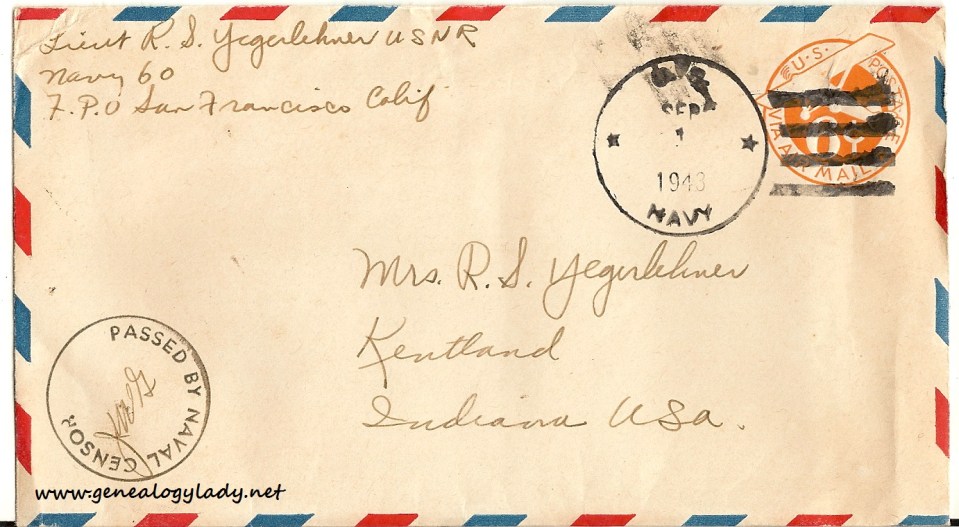 Lieut R. S. Yegerlehner USNR
Navy 60
F.P.O San Francisco Calif
U.S.
SEP
1
1943
NAVY
U.S. POSTAGE
6¢
VIA AIR MAIL
Mrs. R. S. Yegerlehner
Kentland
Indiana USA.
PASSED BY NAVAL CENSOR
www.genealogylady.net